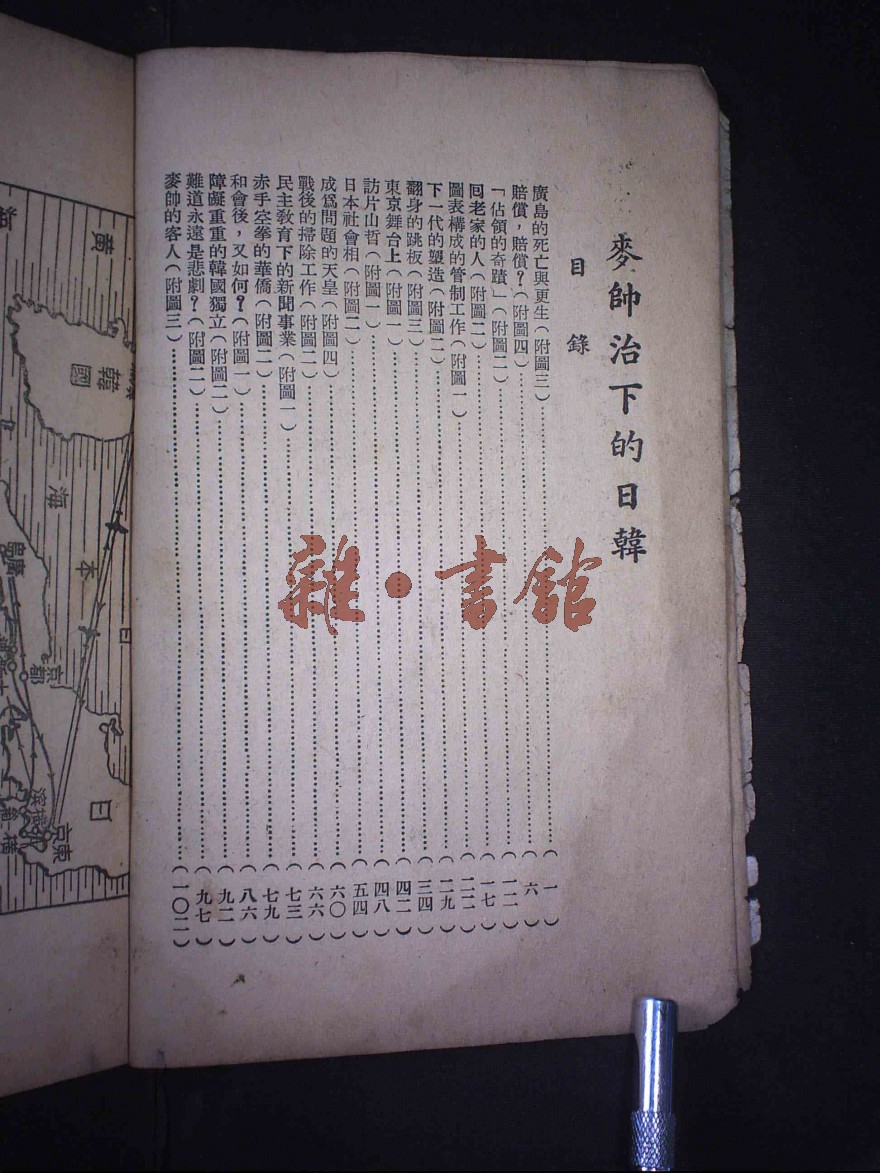 麥帥治下的日韓
目錄
廣島的死亡與更生(附圖三)……(一)
賠償,賠償?(附圖四)……(六)
「佔領的奇蹟」(附圖二)……(一二)
囘老家的人(附圖二)……(一七)
圖表構成的管制工作(附圖一)……(二二)
下一代的塑造(附圖二)……(二九)
翻身的跳板(附圖三)……(三四)
東京舞台上(附圖一)……(四二)
訪片山哲(附圖一)……(四八)
日本社會相(附圖二)……(五四)
成爲問題的天皇(附圖四)……(六〇)
戰後的掃除工作(附圖二)……(六六)
民主教育下的新聞事業(附圖一)……(七三)
赤手空拳的華僑(附圖二)……(七九)
和會後,又如何?(附圖一)……(八六)
障礙重重的韓國獨立(附圖二)……(九二)
難道永遠是悲劇?(附圖二)……(九七)
麥帥的客人(附圖三)……(一〇二)
雜·書館
黃海
韓國
日本海
廣島
京都
東京
日